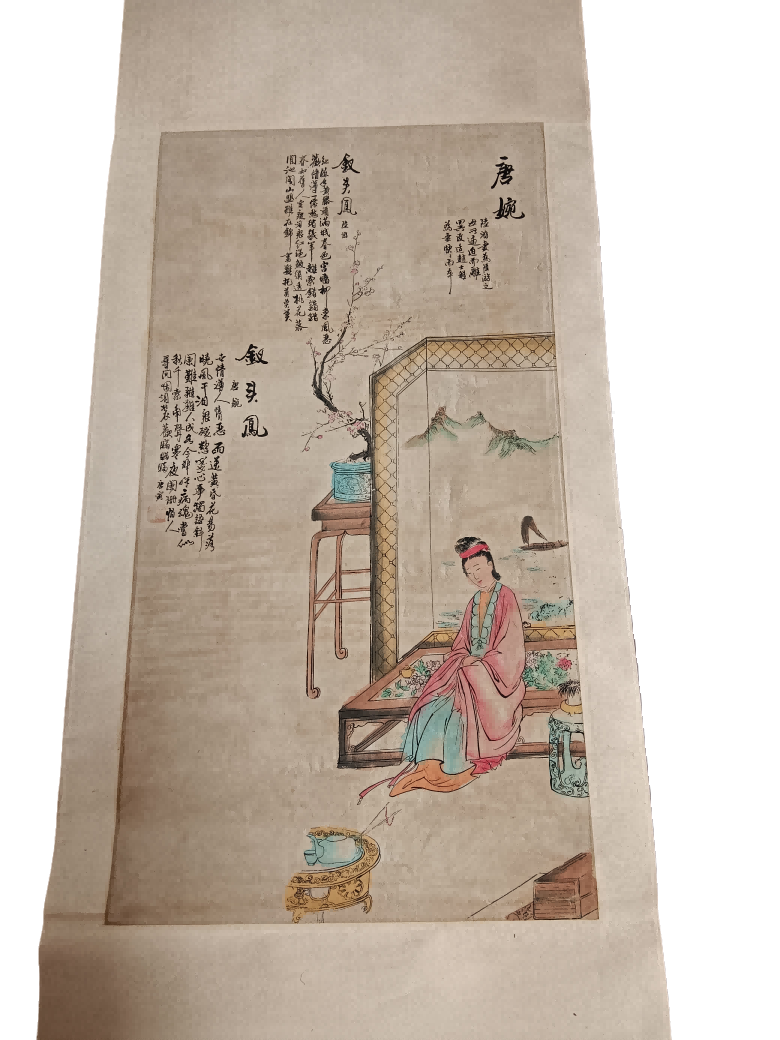 唐婉
陸游妻為陸游之
母所逼迫而離
異後改適趙士程
為妻
釵头鳳
陸游
紅酥手黃藤酒滿城春色宮墻柳 東風惡
歡情薄一懷愁緒幾年離索錯錯錯
春如舊人空瘦淚痕紅浥鮫綃透桃花落
閒池閣山盟雖在錦書難托莫莫莫
釵头鳳
唐婉
世情薄人情惡 雨送黃昏花易落
曉風干淚痕殘欲箋心事獨語斜
闌難難難人成各今非昨病魂常似
秋千索角聲寒夜闌珊怕人
尋問咽淚裝歡瞞瞞瞞 唐寅